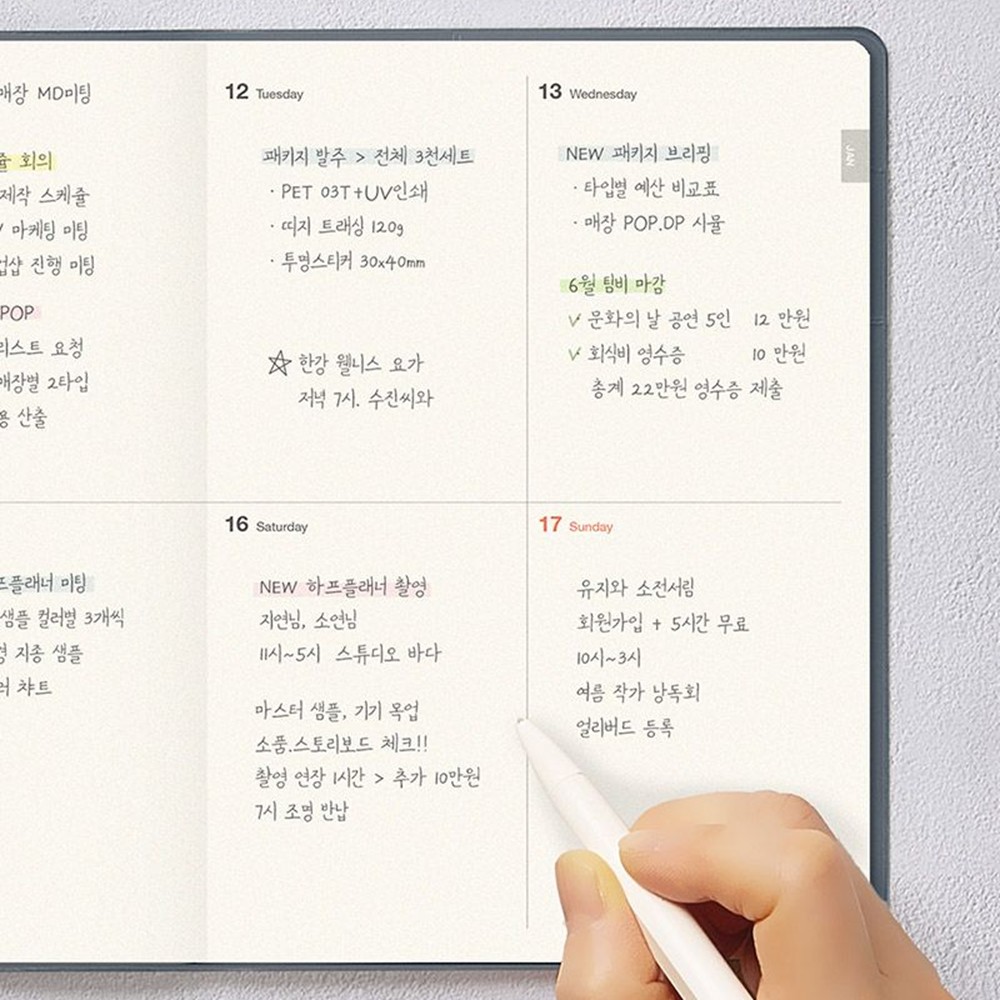 매장 MD미팅
회의
제작 스케쥴
마케팅 미팅
진행 미팅
POP
리스트 요청
매장별 2타입
산출
12 Tuesday
패키지 발주 > 전체 3천세트
· PET 03T+UV인쇄
· 띠지 트래싱 120g
· 투명스티커 30x40mm
☆ 한강 웰니스 요가
저녁 7시. 수진씨와
13 Wednesday
NEW 패키지 브리핑
· 타입별 예산 비교표
· 매장 POP.DP 시뮬
6월 팀비 마감
✓ 문화의 날 공연 5인 12 만원
✓ 회식비 영수증 10 만원
총계 22만원 영수증 제출
JAN
미팅
샘플 컬러별 3개씩
지종 샘플
챠트
16 Saturday
NEW 하프플래너 촬영
지연님, 소연님
11시~5시 스튜디오 바다
마스터 샘플, 기기 목업
소품.스토리보드 체크!!
촬영 연장 1시간 > 추가 10만원
7시 조명 반납
17 Sunday
유지와 소전서림
회원가입 + 5시간 무료
10시~3시
여름 작가 낭독회
얼리버드 등록